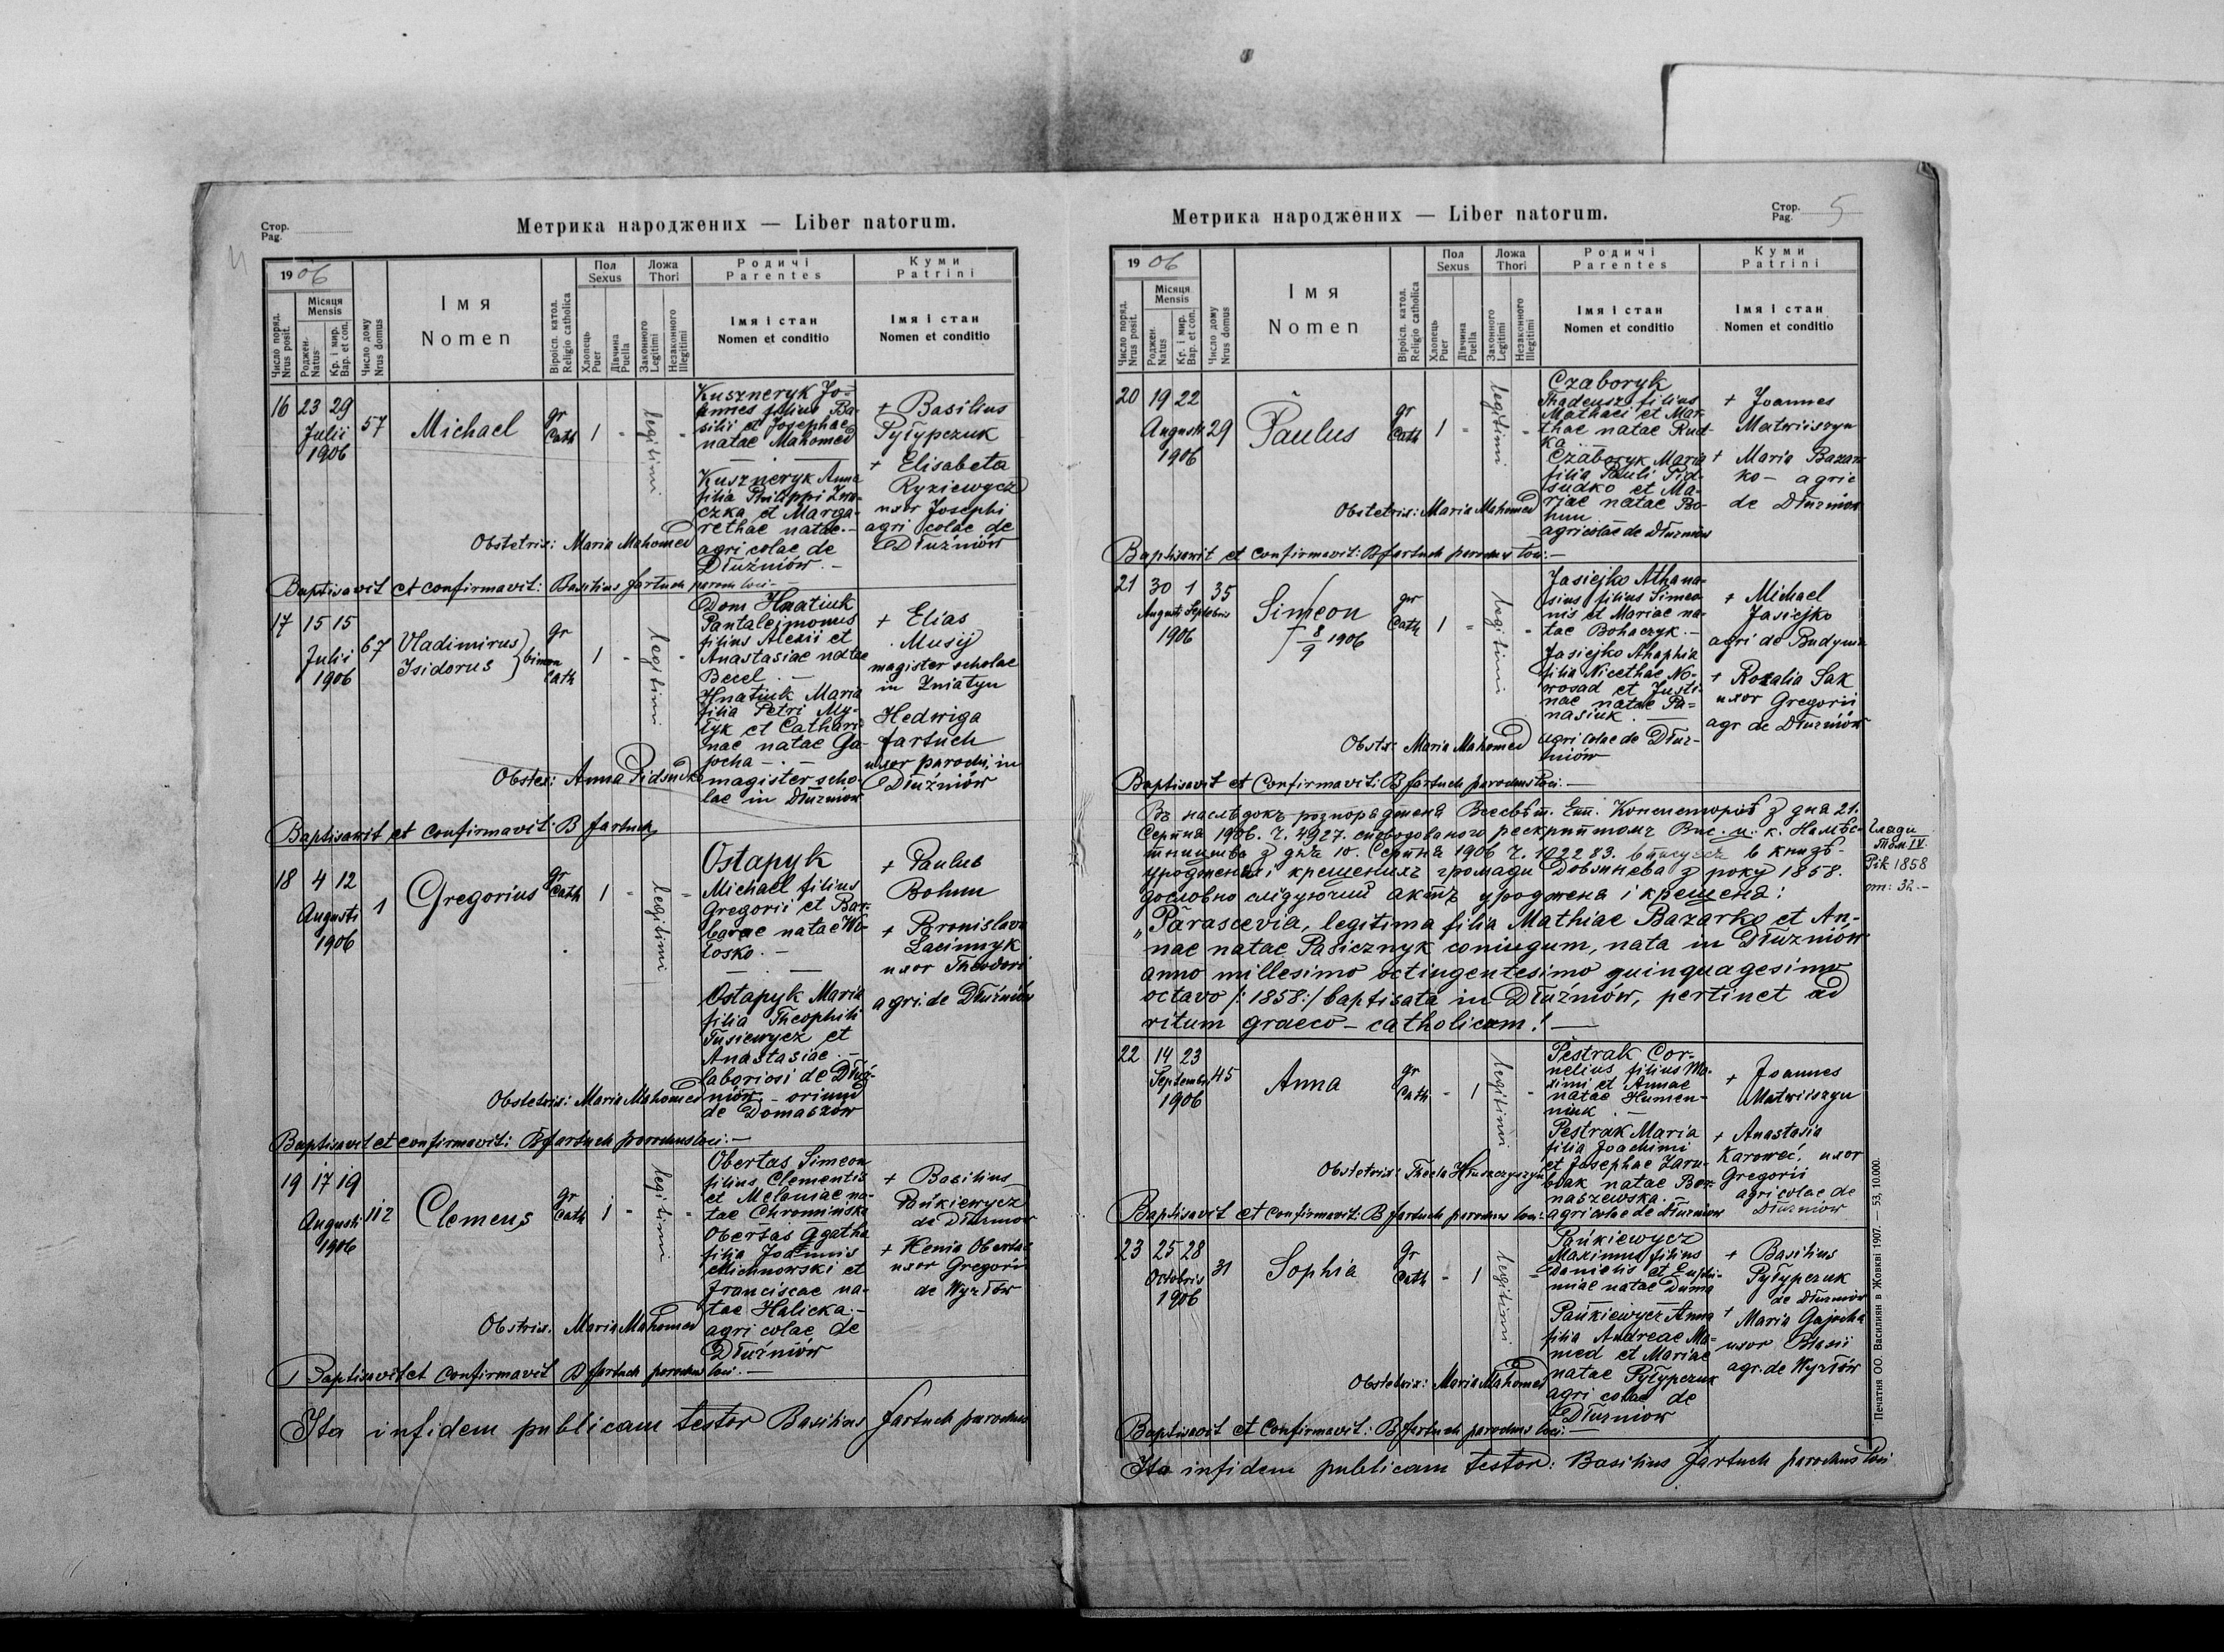 Стор.
Pag.
Метрика народжених — Liber natorum.
4
1906
Місяця
Mensis
Число поряд.
Nrus posit.
Роджен.
Natus
Кр. і мир.
Bap. et con.
Число дому
Nrus domus
Імя
Nomen
Віроісп. катол.
Religio catholica
Пол
Sexus
Хлопець
Puer
Дівчина
Puella
Ложа
Thori
Законного
Legitimi
Незаконного
Illegitimi
Родичі
Parentes
Імя і стан
Nomen et conditio
Куми
Patrini
Імя і стан
Nomen et conditio
16 23 29
Julii
1906
57
Michael
gr
Cath
1 " legitimi "
Kuszneryk Jo-
annes filius Ba-
silii et Josephae
natae Mahomed
Kuszneryk Anna
filia Philippi
czka et Marga-
rethae natae.-
agricolae de
Dłużniów.-
+ Basilius
Pyłypczuk
+ Elisabeta
Ryziewycz
uxor Josephi
agricolae de
Dłużniów
Obstetrix: Maria Mahomed
Baptisavit et confirmavit: Basilius Fartuch paroch loci.-
17 15 15
Julii
1906
67
Vladimirus
Isidorus } binom
gr
Cath
1 " legitimi "
Dom Hnatiuk
Pantaleimonus
filius Alexii et
Anastasiae natae
Becel.-
Hnatiuk Maria
filia Petri My-
łyk et Cathari-
nae natae Ga-
jocha -.-
magister scho-
lae in Dłużniów
+ Elias
Musij
magister scholae
in Żniatyn
Hedwiga
Fartuch
uxor parochi in
Dłużniów
Obstex: Anna Pidsudko
Baptisavit et confirmavit: B Fartuch
18 4 12
Augusti
1906
1
Gregorius
gr
Cath
1 " legitimi "
Ostapyk
Michael filius
Gregorii et Bar-
barae natae Wo-
łosko.-
Ostapyk Maria
filia Theophili
Tusiewycz et
Anastasiae.-
laboriosi de Dłuż-
niów - oriund
de Domaszów
+ Paulus
Bohun
+ Bronislava
Lacinnyk
uxor Theodori
agri. de Dłużniów
Obstetrix: Maria Mahomed
Baptisavit et confirmavit: B Fartuch parochus loci.-
19 17 19
Augusti
1906
112
Clemens
gr
Cath
1 " legitimi "
Obertas Simeon
filius Clementis
et Melaniae na-
tae Chrominska
Obertas Agatha
filia Joannis
Michnowski et
Franciscae na-
tae Halicka.-
agricolae de
Dłużniów
+ Basilius
Pańkiewycz
de Dłużniów
+ Xenia Obertas
uxor Gregorii
de Wyżłów
Obstrix. Maria Mahomed
Baptisavit et confirmavit B Fartuch parochus loci.-
Ita in fidem publicam testor Basilius Fartuch parochus
Метрика народжених — Liber natorum.
Стор.
Pag. 5
1906
Місяця
Mensis
Число поряд.
Nrus posit.
Роджен.
Natus
Кр. і мир.
Bap. et con.
Число дому
Nrus domus
Імя
Nomen
Віроісп. катол.
Religio catholica
Пол
Sexus
Хлопець
Puer
Дівчина
Puella
Ложа
Thori
Законного
Legitimi
Незаконного
Illegitimi
Родичі
Parentes
Імя і стан
Nomen et conditio
Куми
Patrini
Імя і стан
Nomen et conditio
20 19 22
Augusti
1906
29
Paulus
gr
Cath
1 " legitimi "
Czaboryk
Thadeusz filius
Mathaei et Mar-
thae natae Rud-
ka
Czaboryk Maria
filia Pauli Pid-
sudko et Ma-
riae natae Bo-
hun
agricolae de Dłużniów
+ Joannes
Matwiiszyn
+ Maria Bazar-
ko - agric
de Dłużniów
Obstetrix: Maria Mahomed
Baptisavit et confirmavit: B Fartuch parochus loci:-
21 30 1
Augusti Septebris
1906
35
Simeon
† 8/9 1906
gr
Cath
1 " legitimi "
Jasiejko Athana-
sius filius Simeo-
nis et Mariae na-
tae Bohaczyk.-
Jasiejko Ahaphia
filia Nicethae No-
wosad et Justi-
nae natae Pa-
nasiuk.-
agricolae de Dłuż-
niów
+ Michael
Jasiejko
agri de Budynin
+ Rozalia Sak
uxor Gregorii
agr de Dłużniów
Obstx: Maria Mahomed
Baptisavit et confirmavit: B Fartuch parochus loci.-
Въ наслѣдокъ розпорядженя Всесвѣт. Еп. Консисторіѣ з дня 21.
Серпня 1906. Ч. 4927. спowодованого рескриптомъ Вис. ц. к. Намѣс-
тництва з дня 10. Серпня 1906 Ч. 102283. вписуєся в книзѣ
уродженыхъ і крещенихъ громади Довжнева з року 1858.
дословно слідуючий актъ уродженя і крещеня:
"Parascevia, legitima filia Mathiae Bazarko et An-
nae natae Pasicznyk coniugum, nata in Dłużniów
anno millesimo octingentesimo quinquagesimo
octavo /:1858:/ baptisata in Dłużniów, pertinet ad
ritum graeco-catholicum! —
Гляди
Том IV.
Рік 1858
ст: 32.-
22 14 23
Septembr
1906
45
Anna
gr
Cath
" 1 legitimi "
Pestrak Cor-
nelius filius Ma-
ximi et Annae
natae Humen-
niuk.-
Pestrak Maria
filia Joachimi
et Josephae Zaru-
biak natae Ber-
naszewska.-
agricolae de Dłużniów
+ Joannes
Matwiiszyn
+ Anastasia
Karoweć, uxor
Gregorii
agricolae de
Dłużniów
Obstetrix: Thecla Hruszczyszyn
Baptisavit et confirmavit: B Fartuch parochus loci:
23 25 28
Octobris
1906
31
Sophia
gr
Cath
" 1 legitimi "
Pańkiewycz
Maximus filius
Danielis et Euphi-
miae natae Duma
Pańkiewycz Anna
filia Andreae Ma-
med et Mariae
natae Pyłypczuk
agricolae de
Dłużniow
+ Basilius
Pyłypczuk
de Dłużniow
+ Maria Gajocha
uxor Blasii
agr. de Wyżłów
Obstetrix: Maria Mahomed
Baptisavit et confirmavit: B Fartuch parochus loci.-
Ita in fidem publicam testor: Basilius Fartuch parochus loci
Печатня ОО. Василиян в Жовкві 1907. 53, 10.000.